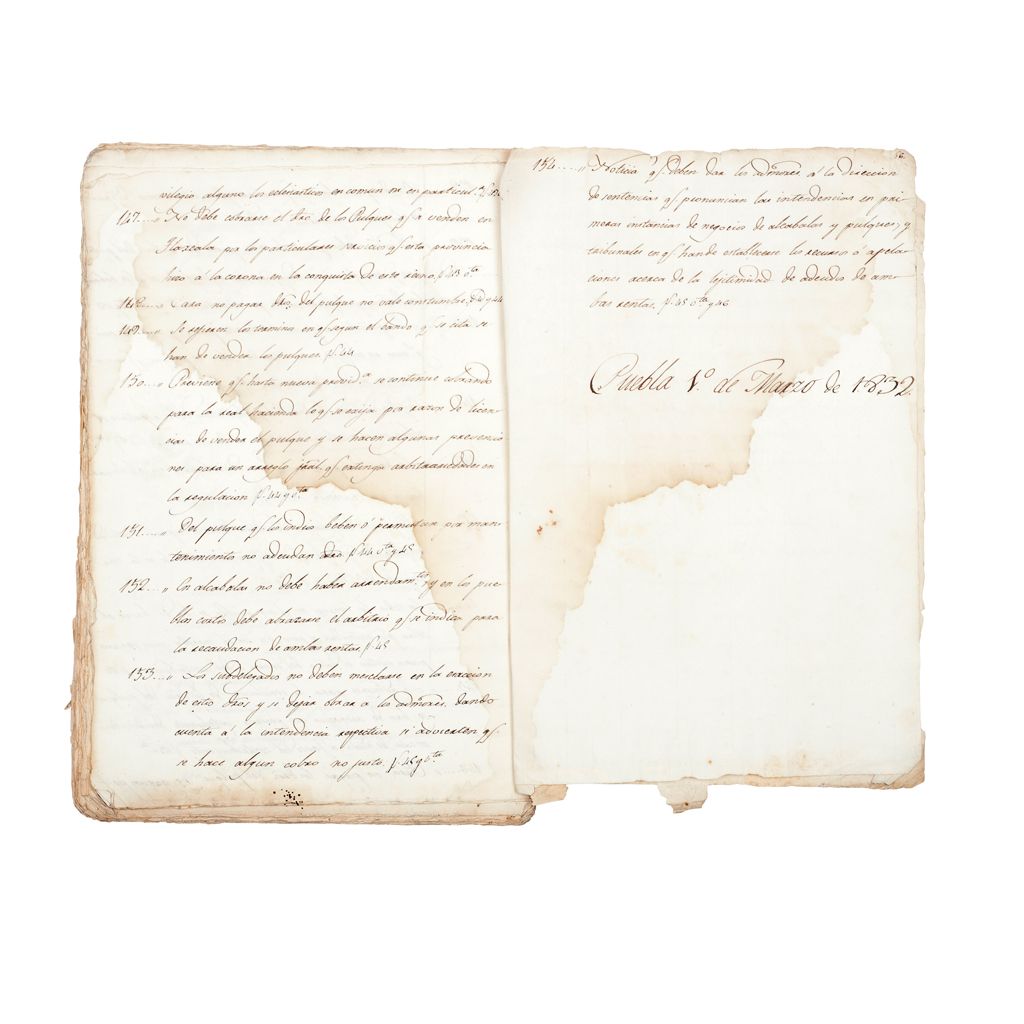 vilegio alguno los eclesiasticos en comun ni en particul.
147... No debe cobrarse el dro. de los Pulques qe. se venden en
Tlaxcala por los particulares servicios qe. esta provincia
hizo á la corona en la conquista de este reino, f. 43 vta
148... Para no pagar dro. del pulque no vale constumbre, f. 43 y 44
149... Se refieren los terminos en qe. segun el bando qe. se cita se
han de vender los pulques. f. 44
150... Previene qe. hasta nueva provida. se continue cobrando
para la real hacienda lo qe. se exija por razon de licen-
cias de vender el pulque y se hacen algunas prevencio-
nes para un arreglo jral. qe. extinga arbitrariedades en
la regulacion f. 44 y vta
151... Del pulque qe. los indios beben ó permutan por man-
tenimiento no adeudan dro. f. 44 vta y 45
152... En alcabalas no debe haber arrendamtos. y en los pue-
blos cortos debe abrazarse el arbitrio qe. se indica para
la recaudacion de ambas rentas, f. 45
153... Los subdelegados no deben mesclarse en la exaccion
de estos dros y si dejar obrar a los admores. dando
cuenta á la intendencia respectiva si advierten qe.
se hace algun cobro no justo. f. 45 y vta
56.
154... Noticia qe. deben dar los admores á la direccion
de sentencias qe. pronuncian las intendencias en pri-
meras instancias de negocios de alcabalas y pulques, y
tribunales en qe. han de establecerse los recursos ó apela-
ciones acerca de la lejitimidad de adeudos de am-
bas rentas. f. 45 vta y 46
Puebla 1.º de Marzo de 1832.